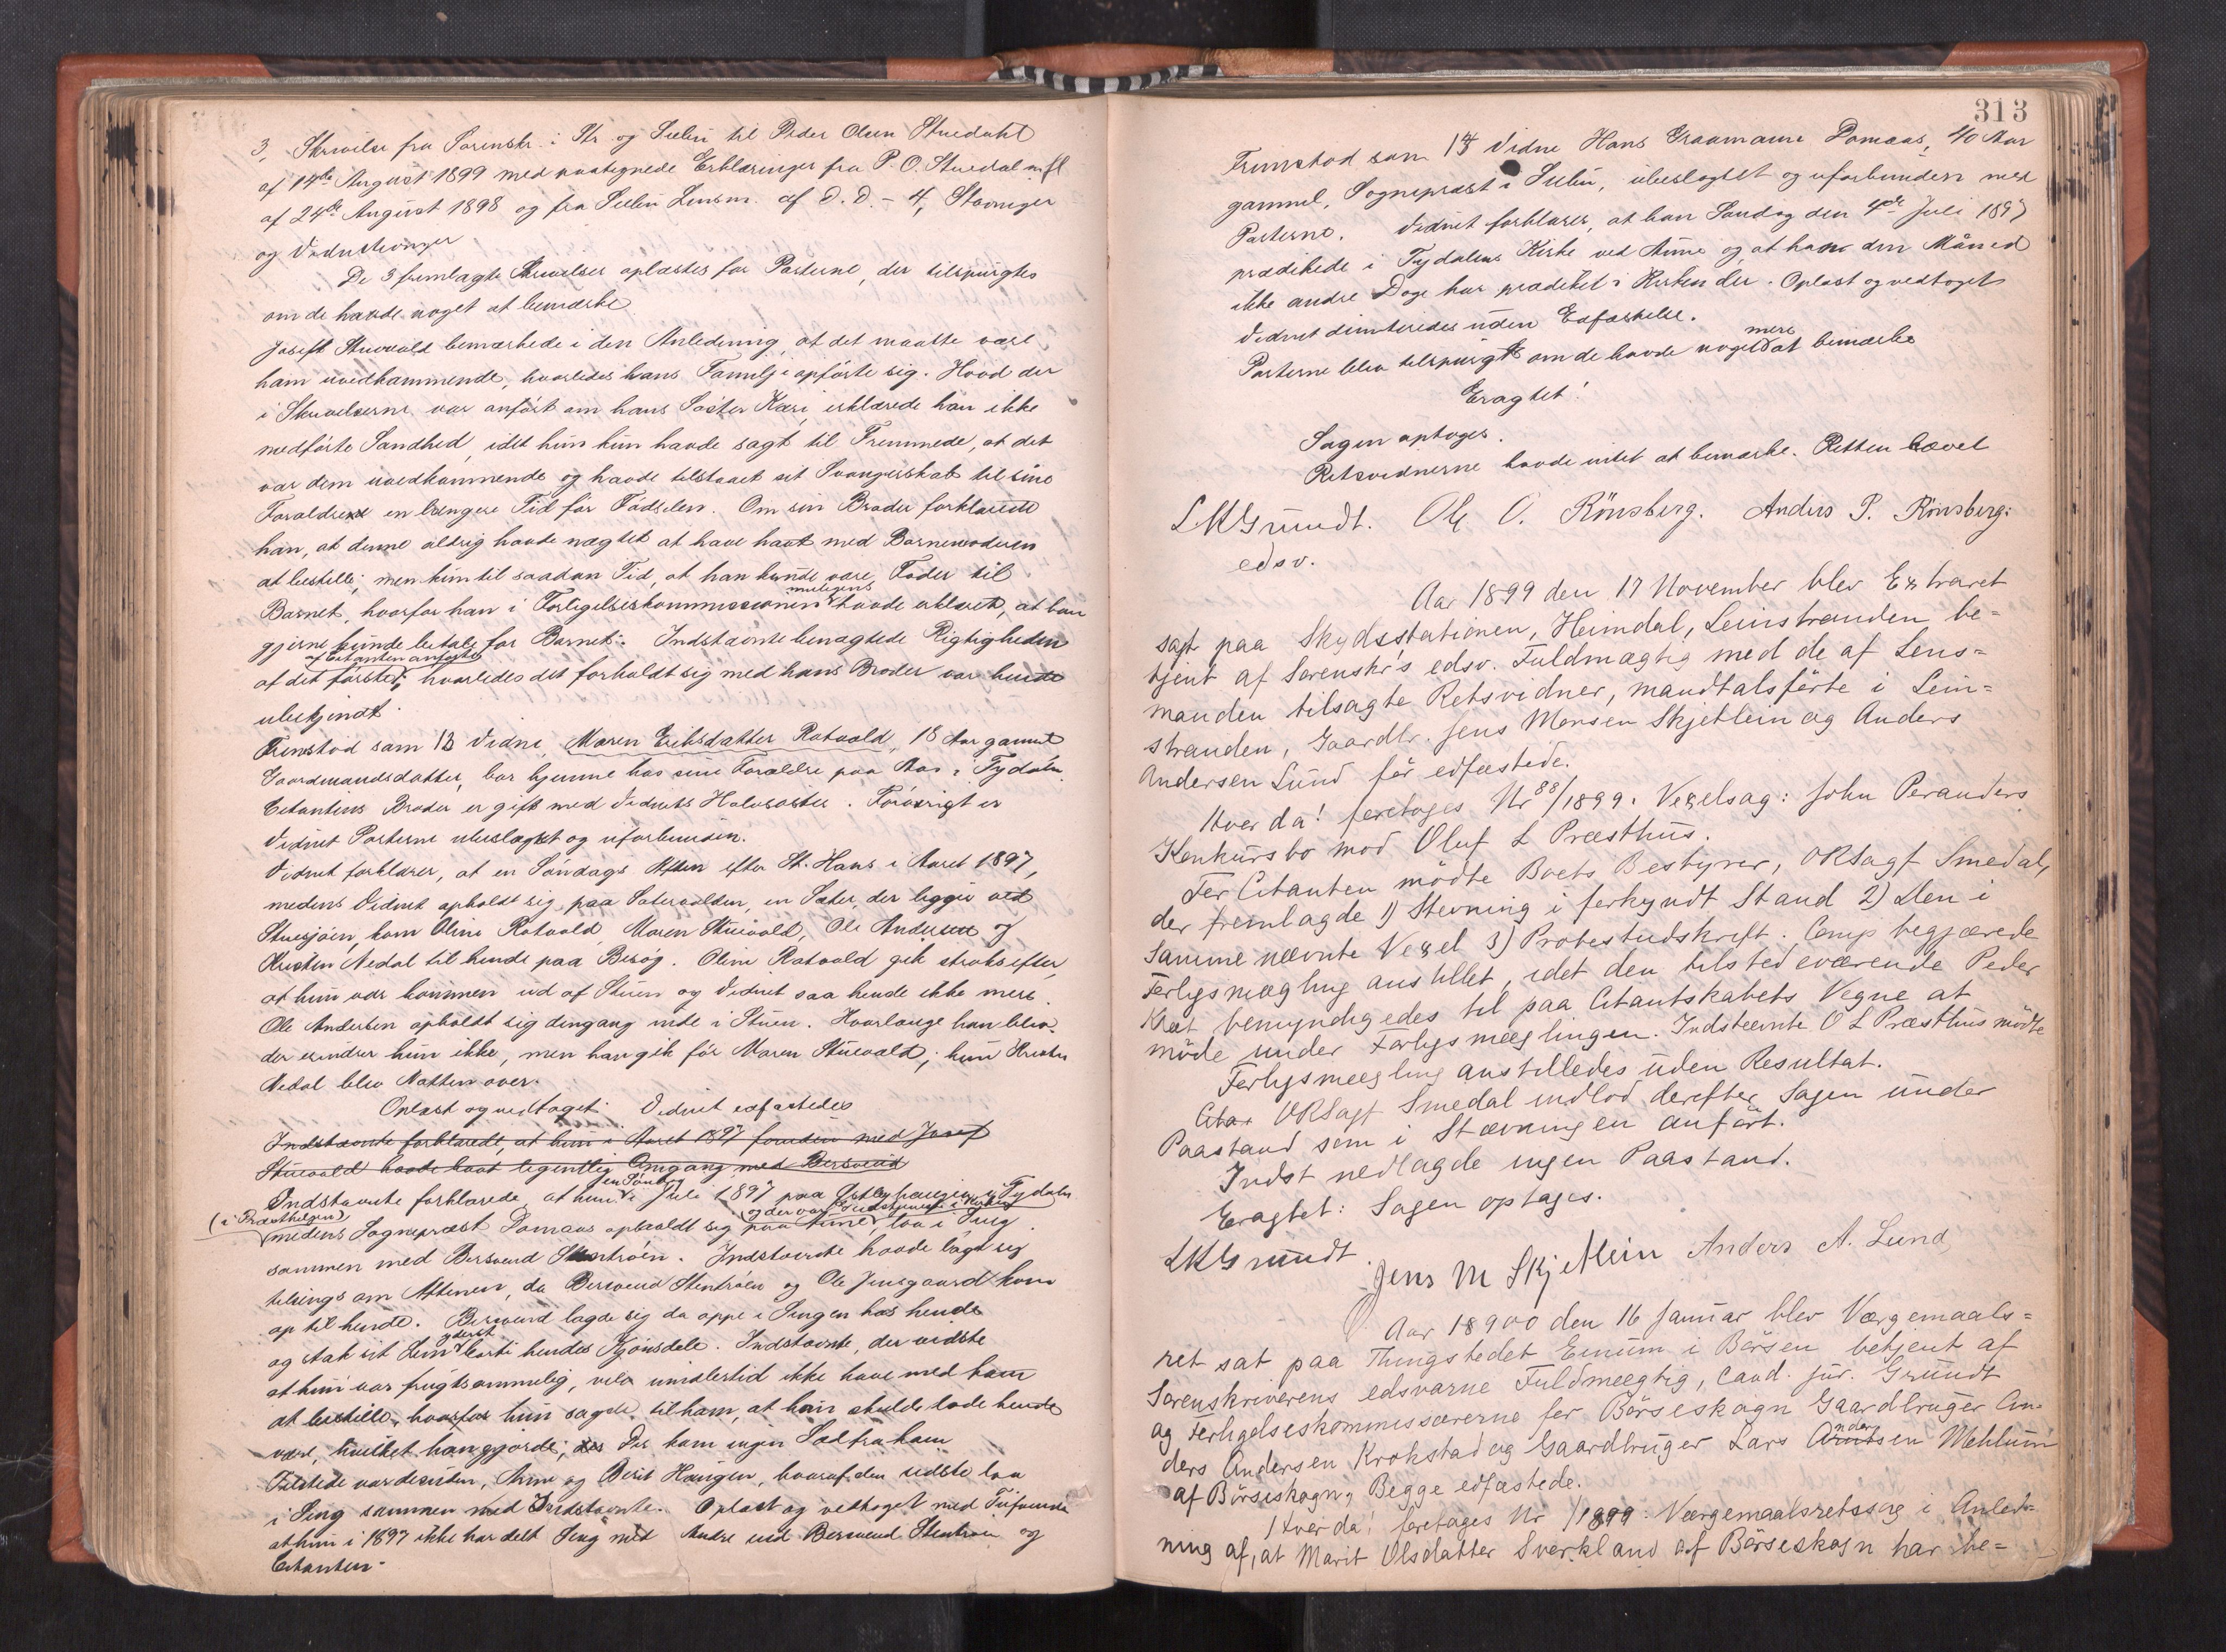 3, Skrivelse fra Sorenskr. i Str og Selbu til Peder Olsen Stuedahl
af 14de August 1899 med paategnede Erklæringer fra P. O. Stuedal m. fl
af 24de August 1898 og fra Selbu Lensm. af D. D. - 4, Stævninger
og Vidnestevninger
De 3 fremlagte Skrivelser oplæstes for Parterne, der tilspurgtes
om de havde noget at bemærke
Josef Stuevold bemærkede i den Anledning, at det maatte være
ham uvedkommende, hvorledes hans Familje opførte sig. Hvad der
i Skrivelserne var anført om hans Søster Kari, erklærede han ikke
medførte Sandhed, idet hun kun havde sagt til Fremmede, at det
var dem uvedkommende og havde tilstaaet sit Svangerskab til sine
Forældre en længere Tid før Fødselen. Om sin Broder forklarede
han, at denne aldrig havde nægtet at have havt med Barnemoderen
at bestille; men kun til saadan Tid, at han kunde være Fader til
muligens
Barnet, hvorfor han i Forligelseskommissionen havde erklæret, at han
gjerne kunde betale for Barnet. Indstævnte benægtede Rigtigheden
af Citanten anførte
af det første; hvorledes det forholdt sig med hans Broder var hende
ubekjendt.
Fremstod som 13 Vidne, Maren Eriksdatter Rotvold, 18 Aar gammel
Gaardmandsdatter, bor hjemme hos sine Forældre paa Aas i Tydalen.
Citantens Broder er gift med Vidnets Halvsøster. Forøvrigt er
Vidnet Parterne ubeslægtet og uforbunden.
Vidnet forklarer, at en Søndags Aften efter St. Hans i Aaret 1897,
medens Vidnet opholdt sig paa Sætervolden, en Sæter, der ligger ved
Stuesjøen, kom Oline Rotvold, Maren Stuevold, Ole Andersen og
Kristen Nedal til hende paa Besøg. Oline Rotvold gik straks efter,
at hun var kommen ud af Stuen og Vidnet saa hende ikke mere.
Ole Andersen opholdt sig dengang inde i Stuen. Hvorlænge han blev
der erindrer hun ikke, men han gik før Maren Stuevold; kun Kristen
Nedal blev Natten over.
Oplæst og vedtaget. Vidnet edfæstedes
Indstævnte forklarede, at hun i Aaret 1897 foruden med Josef
Stuevold havde havt legemlig Omgang med Bersvend
en Søndag
Indstævnte forklarede, at hun i Juli 1897 paa Østbyhaugen i Tydalen
(i Præsthelgen) og der var Gudstjeneste i Kirken
medens Sognepræst Damaas opholdt sig paa Aune, laa i Seng
sammen med Bersvend Stentrøen. Indstævnte havde lagt sig
tilsengs om Aftenen, da Bersvend Stentrøen og Ole Jensgaard kom
op til hende. Bersvend lagde sig da oppe i Sengen hos hende
yderst
og stak sit Lem borti hendes Kjønsdele. Indstævnte, der vidste
at hun var frugtsommelig, vilde imidlertid ikke have med ham
at bestille, hvorfor hun sagde til ham, at han skulde lade hende
være, hvilket han gjorde; Der kom ingen Sæd fra ham
Tilstede var desuden, Anne og Berit Haugen, hvoraf den sidste laa
i Seng sammen med Indstævnte. Oplæst og vedtaget med Tilføiende
at hun i 1897 ikke har delt Seng med Andre end Bersvend Stentrøen og
Citanten.
313
Fremstod som 14 Vidne Hans Graamann Damaas, 40 Aar
gammel, Sognepræst i Selbu, ubeslægtet og uforbunden med
Parterne. Vidnet forklarer, at han Søndag den 4de Juli 1897
prædikede i Tydalens Kirke ved Aune og at han den Måned
ikke andre Dage har prædiket i Kirken der. Oplæst og vedtaget
Vidnet dimitteredes uden Edfæstelse.
mere
Parterne blev tilspurgt om de havde noget at bemærke
Eragtet!
Sagen optages.
Retsvidnerne havde intet at bemærke. Retten hævet
L K Grundt. Ole O. Rönsberg. Anders P. Rönsberg.
edsv.
Aar 1899 den 17 November blev Extraret
sat paa Skydsstationen, Heimdal, Leinstranden, be-
tjent af Sorenskr's edsv. Fuldmægtig med de af Lens-
manden tilsagte Retsvidner, mandtalsførte i Lein-
stranden, Gaardbr. Jens Monsen Skjetlein og Anders
Andersen Lund før edfæstede.
Hver da! foretoges Nr 88/1899. Vexelsag: John Peranders
Konkursbo mod Oluf L Præsthus.
For Citanten mødte Boets Bestyrer, ORSagf Smedal,
der fremlagde 1) Stevning i forkyndt Stand 2) Den i
samme nævnte Vexel 3) Protestudskrift. Comp begjærede
Forligsmægling anstillet, idet den tilstedeværende Peder
Kvæt bemyndigedes til paa Citantskabets Vegne at
møde under Forligsmæglingen. Indstævnte O L Præsthus mødte
Forligsmægling anstilledes uden Resultat.
Citar ORSagf Smedal indlod derefter Sagen under
Paastand som i Stævningen anført.
Indst nedlagde ingen Paastand.
Eragtet: Sagen optages.
L K Grundt. Jens M Skjetlein Anders A. Lund
Aar 18900 den 16 Januar blev Værgemaals-
ret sat paa Thingstedet Einum i Børsen betjent af
Sorenskriverens edsvorne Fuldmægtig, Cand. jur. Grundt
og Forligelseskommissærerne for Børseskogn Gaardbruger An-
ders Andersen Krokstad og Gaardbruger Lars Andersen Mehlum
af Børseskogn, Begge edfæstede.
Hver da! foretages Nr 1/1899: Værgemaalsretssag i Anled-
ning af, at Marit Olsdatter Sverkland af Børseskogn har be-